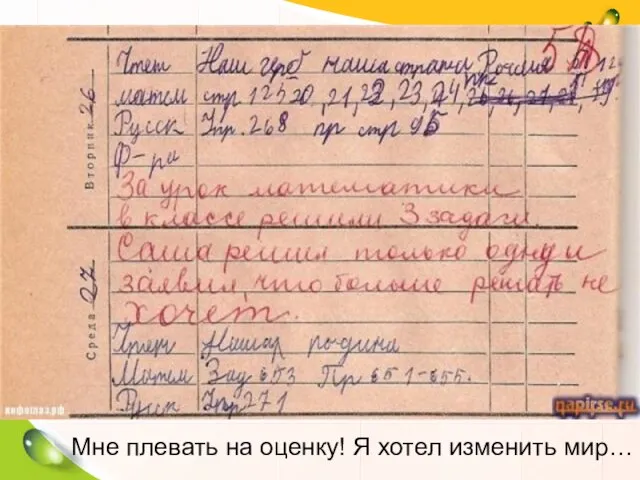 Вторник 26
Чтен Наш герб наша страна Россия 5
матем стр 125 20, 21, 22, 23, 24,
Русск Упр. 268 пр стр 95
Ф-ра
За урок математики
в классе решили 3 задачи.
Среда 27
Саша решил только одну и
заявил, что больше решать не
хочет.
Чтен Нашая родина
Матем Зад 653 Пр 651-655.
Русск Упр 271
инфоглаз.рф
papirse.ru
Мне плевать на оценку! Я хотел изменить мир…